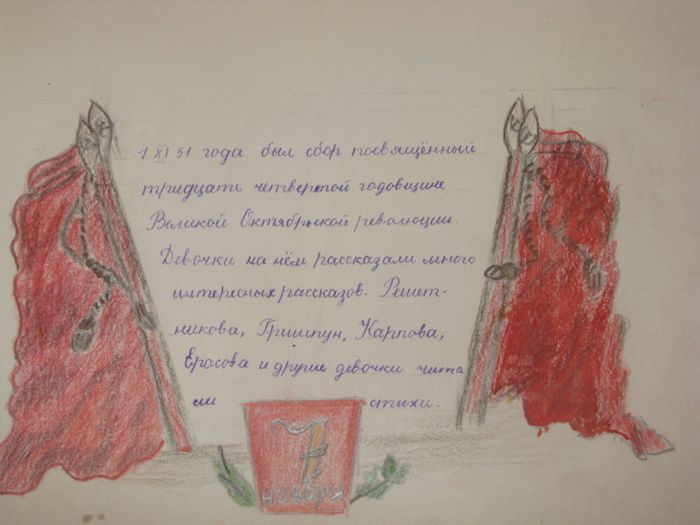 1 XI 51 года был сбор посвящённый
тридцать четвертой годовщине
Великой Октябрьской революции.
Девочки на нём рассказали много
интересных рассказов. Решет-
никова, Гришпун, Карпова,
Ерасова и другие девочки чита
ли стихи.
7
ноября